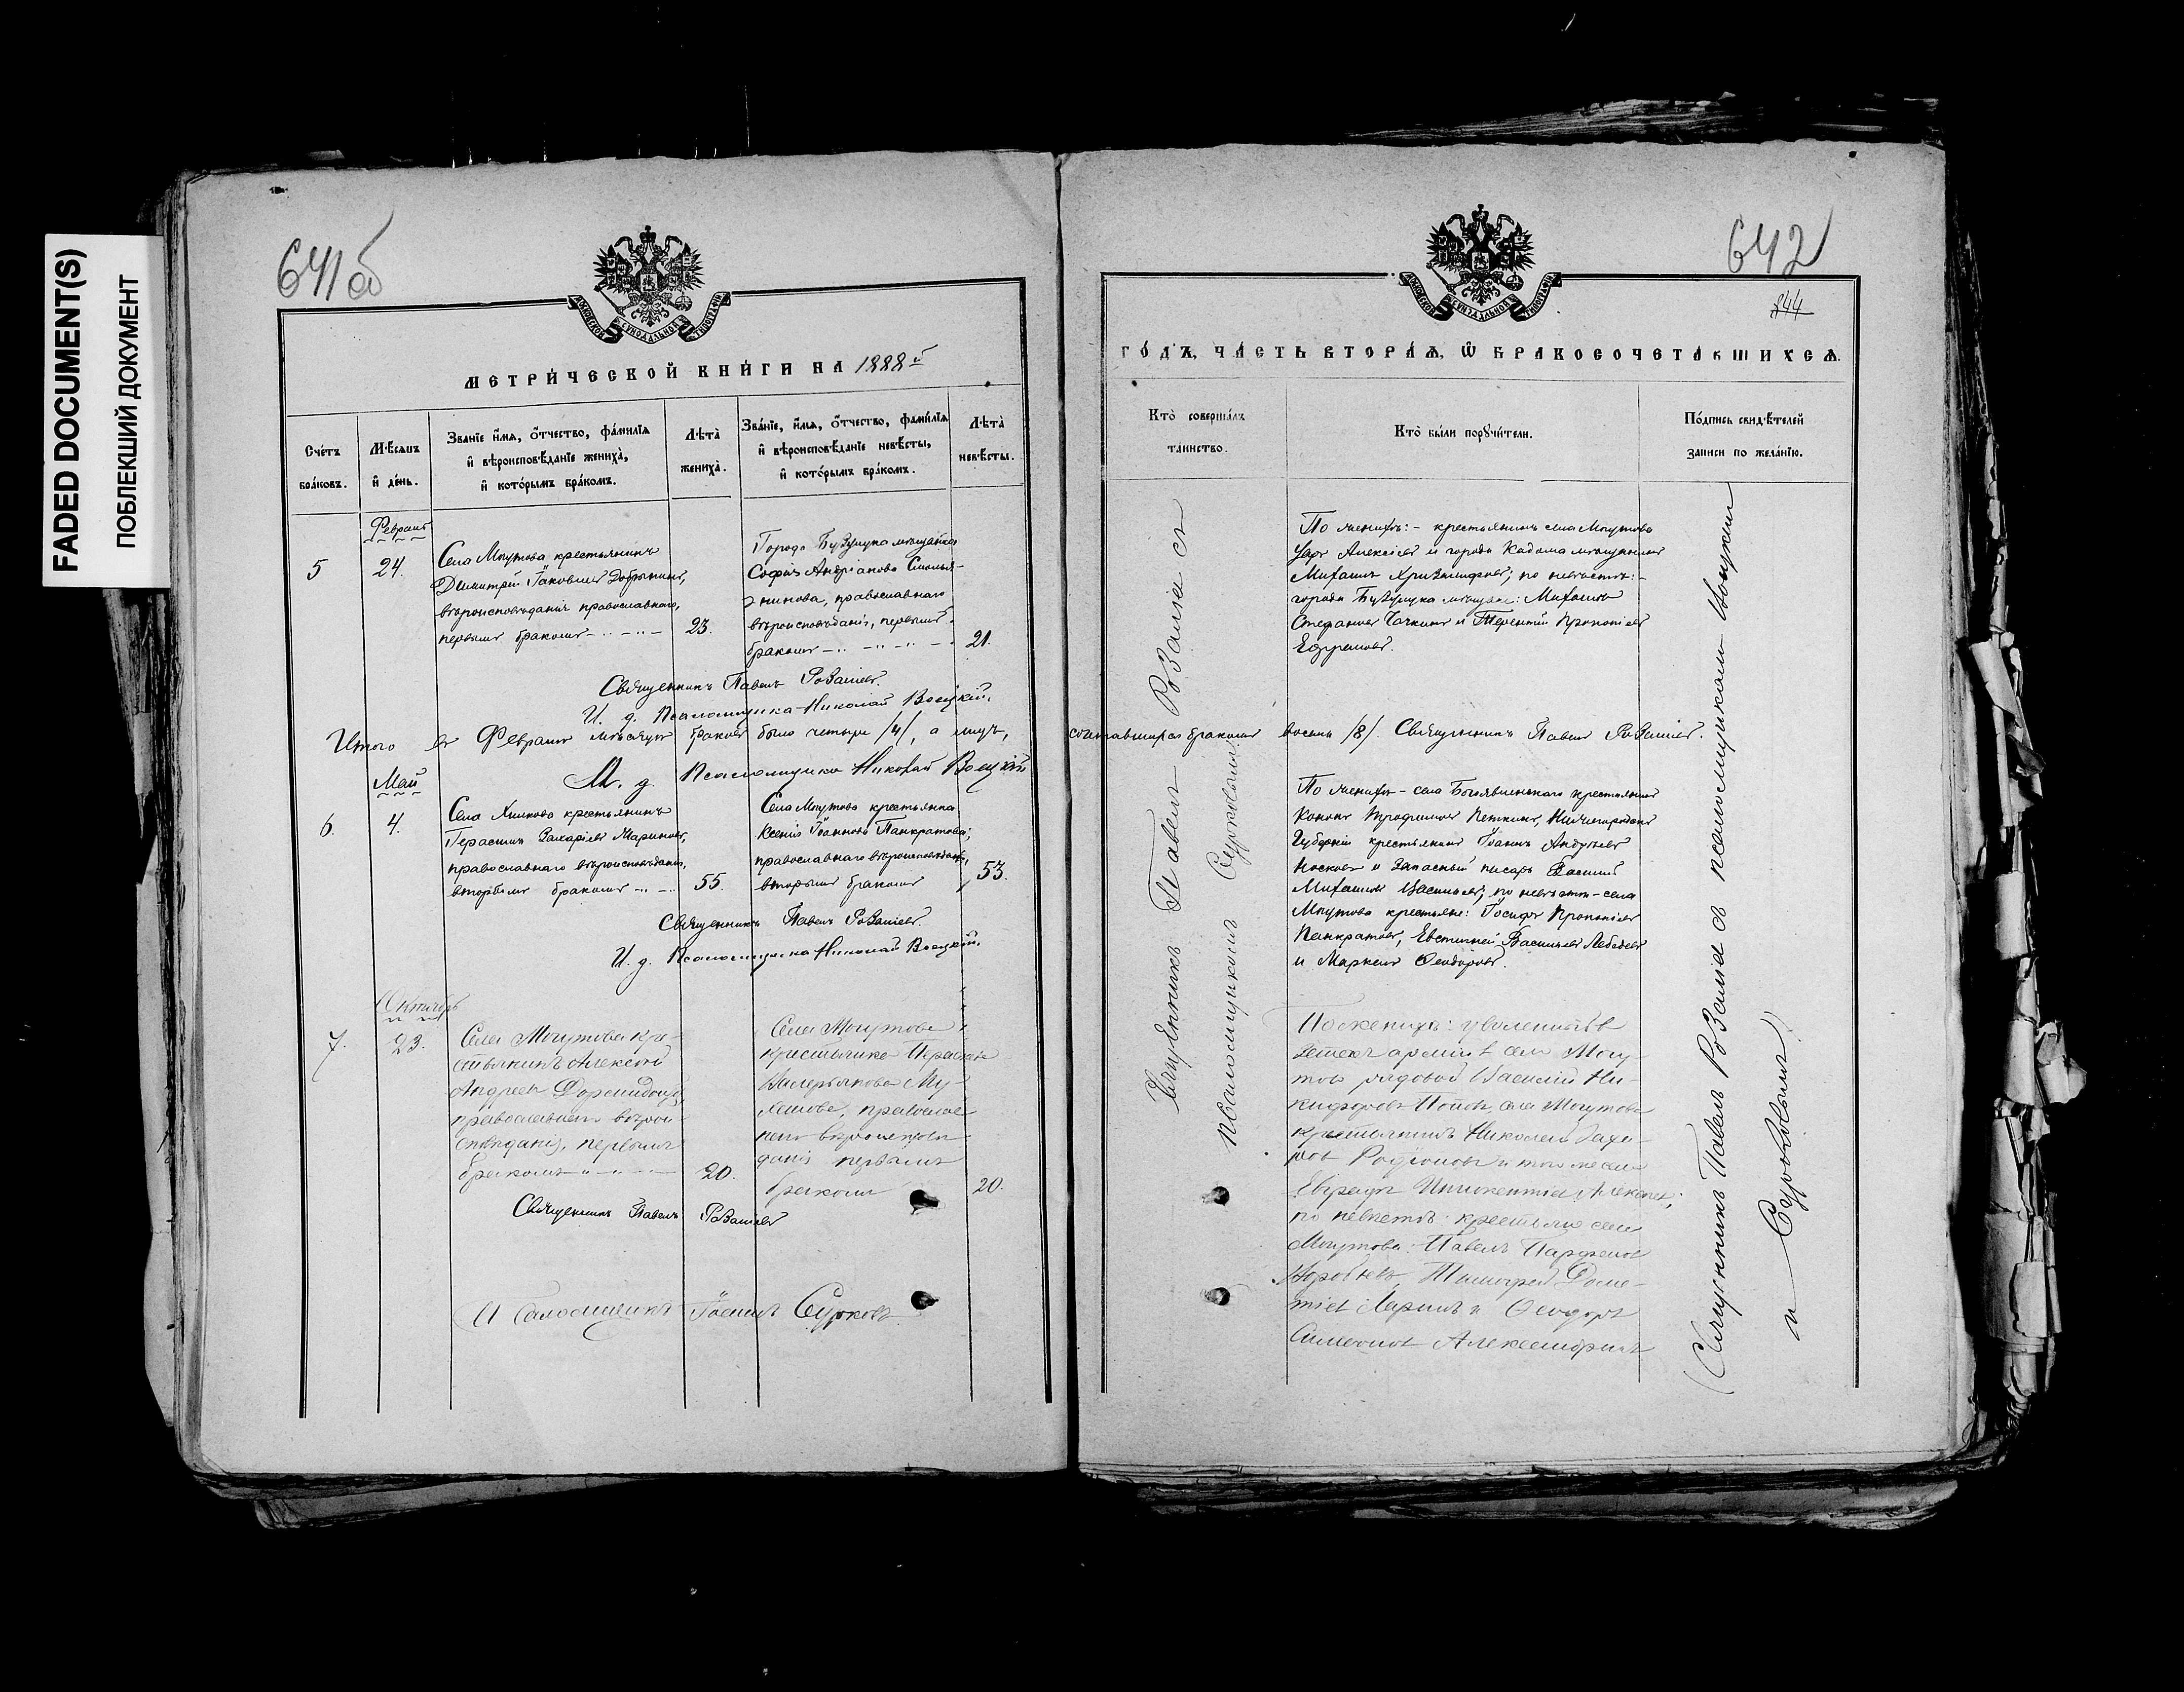 FADED DOCUMENT(S)
ПОБЛЕКШИЙ ДОКУМЕНТ
641об
МЕТРИ́ЧЕСКОЙ КНИ́ГИ НА 1888й
Сче́тъ бра́ковъ.
Мѣ́сяцъ и҆ де́нь.
Зва́нїе и҆́мѧ, ѻ҆́тчество, фами́лїѧ
и҆ вѣроисповѣ́данїе жениха̀,
и҆ кото́рымъ бра́комъ.
Лѣта̀ жениха̀.
Зва́нїе, и҆́мѧ, ѻ҆́тчество, фами́лїѧ
и҆ вѣроисповѣ́данїе невѣ́сты,
и҆ кото́рымъ бра́комъ.
Лѣта̀ невѣ́сты.
Февраль
5
24.
Села Могутова крестьянинъ
Димитрій Іаковлевъ Добрынинъ,
вѣроисповѣданія православнаго,
первымъ бракомъ
23.
Города Бузулука мѣщанка
Софія Андріанова
православнаго
вѣроисповѣданія, первымъ
бракомъ
21.
Священникъ Павелъ Розаліевъ.
И. д. Псаломщика Николай Воецкій.
Итого въ Февралѣ мѣсяцѣ браковъ было четыре /4/, а лицъ,
И. д. Псаломщика Николай Воецкій
Май
6.
4.
Села крестьянинъ
Герасимъ Захаріевъ Мариновъ,
православнаго вѣроисповѣданія,
вторымъ бракомъ
55.
Села Могутова крестьянка
Ксенія Іоаннова Панкратова,
православнаго вѣроисповѣданія,
вторымъ бракомъ
53.
Священникъ Павелъ Розаліевъ.
И. д. Псаломщика Николай Воецкій.
Октябрь
7.
23.
Села Могутова кре-
стьянинъ Алексѣй
Андреевъ
православнаго вѣрои-
сповѣданія, первымъ
бракомъ
20.
Села Могутова
крестьянка
Валерьянова
православ-
наго вѣроисповѣ-
данія первымъ
бракомъ
20.
Священникъ Павелъ Розаліевъ
Псаломщикъ Іоаннъ Сурковъ.
642
844
ГО́ДЪ, ЧА́СТЬ ВТОРА́Ѧ, Ѡ҆ БРАКОСОЧЕТА́ВШИХСѦ.
Кто̀ соверша́лъ
та́инство.
Кто̀ бы́ли порꙋчи́тели.
По́дпись свидѣ́телей
за́писи по жела́нїю.
По женихѣ: - крестьянинъ села Могутова
Алексіевъ и города Кадома мѣщанинъ
Михаилъ по невѣстѣ: -
города Бузулука мѣщане: Михаилъ
Стефановъ и Терентій Прокопіевъ
Ефремовъ.
сочетавшихся бракомъ восемь /8/. Священникъ Павелъ Розаліевъ.
По женихѣ - села Богоявленскаго крестьянинъ
Кононъ Трофимовъ Нижегородской
Губерніи крестьянинъ Іоаннъ Андреевъ
Носковъ и Запасный писарь Василій
Михаиловъ Васильевъ; по невѣстѣ - села
Могутова крестьяне: Іосифъ Прокопіевъ
Панкратовъ, Евстигней Васильевъ Лебедевъ
и Маркелъ Ѳеодоровъ.
По женихѣ: уволенный въ
запасъ арміи села Могу-
това рядовой Василій Ни-
кифоровъ Поповъ, села Могутова
крестьянинъ Николай Заха-
ровъ Родіоновъ и того же села
по невѣстѣ: крестьяне села
Могутова: Павелъ Парфеновъ
Тимофей Доме-
тіевъ Ларинъ и Ѳеодоръ
Симеоновъ Александринъ
Священникъ Павелъ Розаліевъ съ
псаломщикомъ Сурковымъ
Священникъ Павелъ Розаліевъ съ псаломщикомъ Воецкимъ
и Сурковымъ